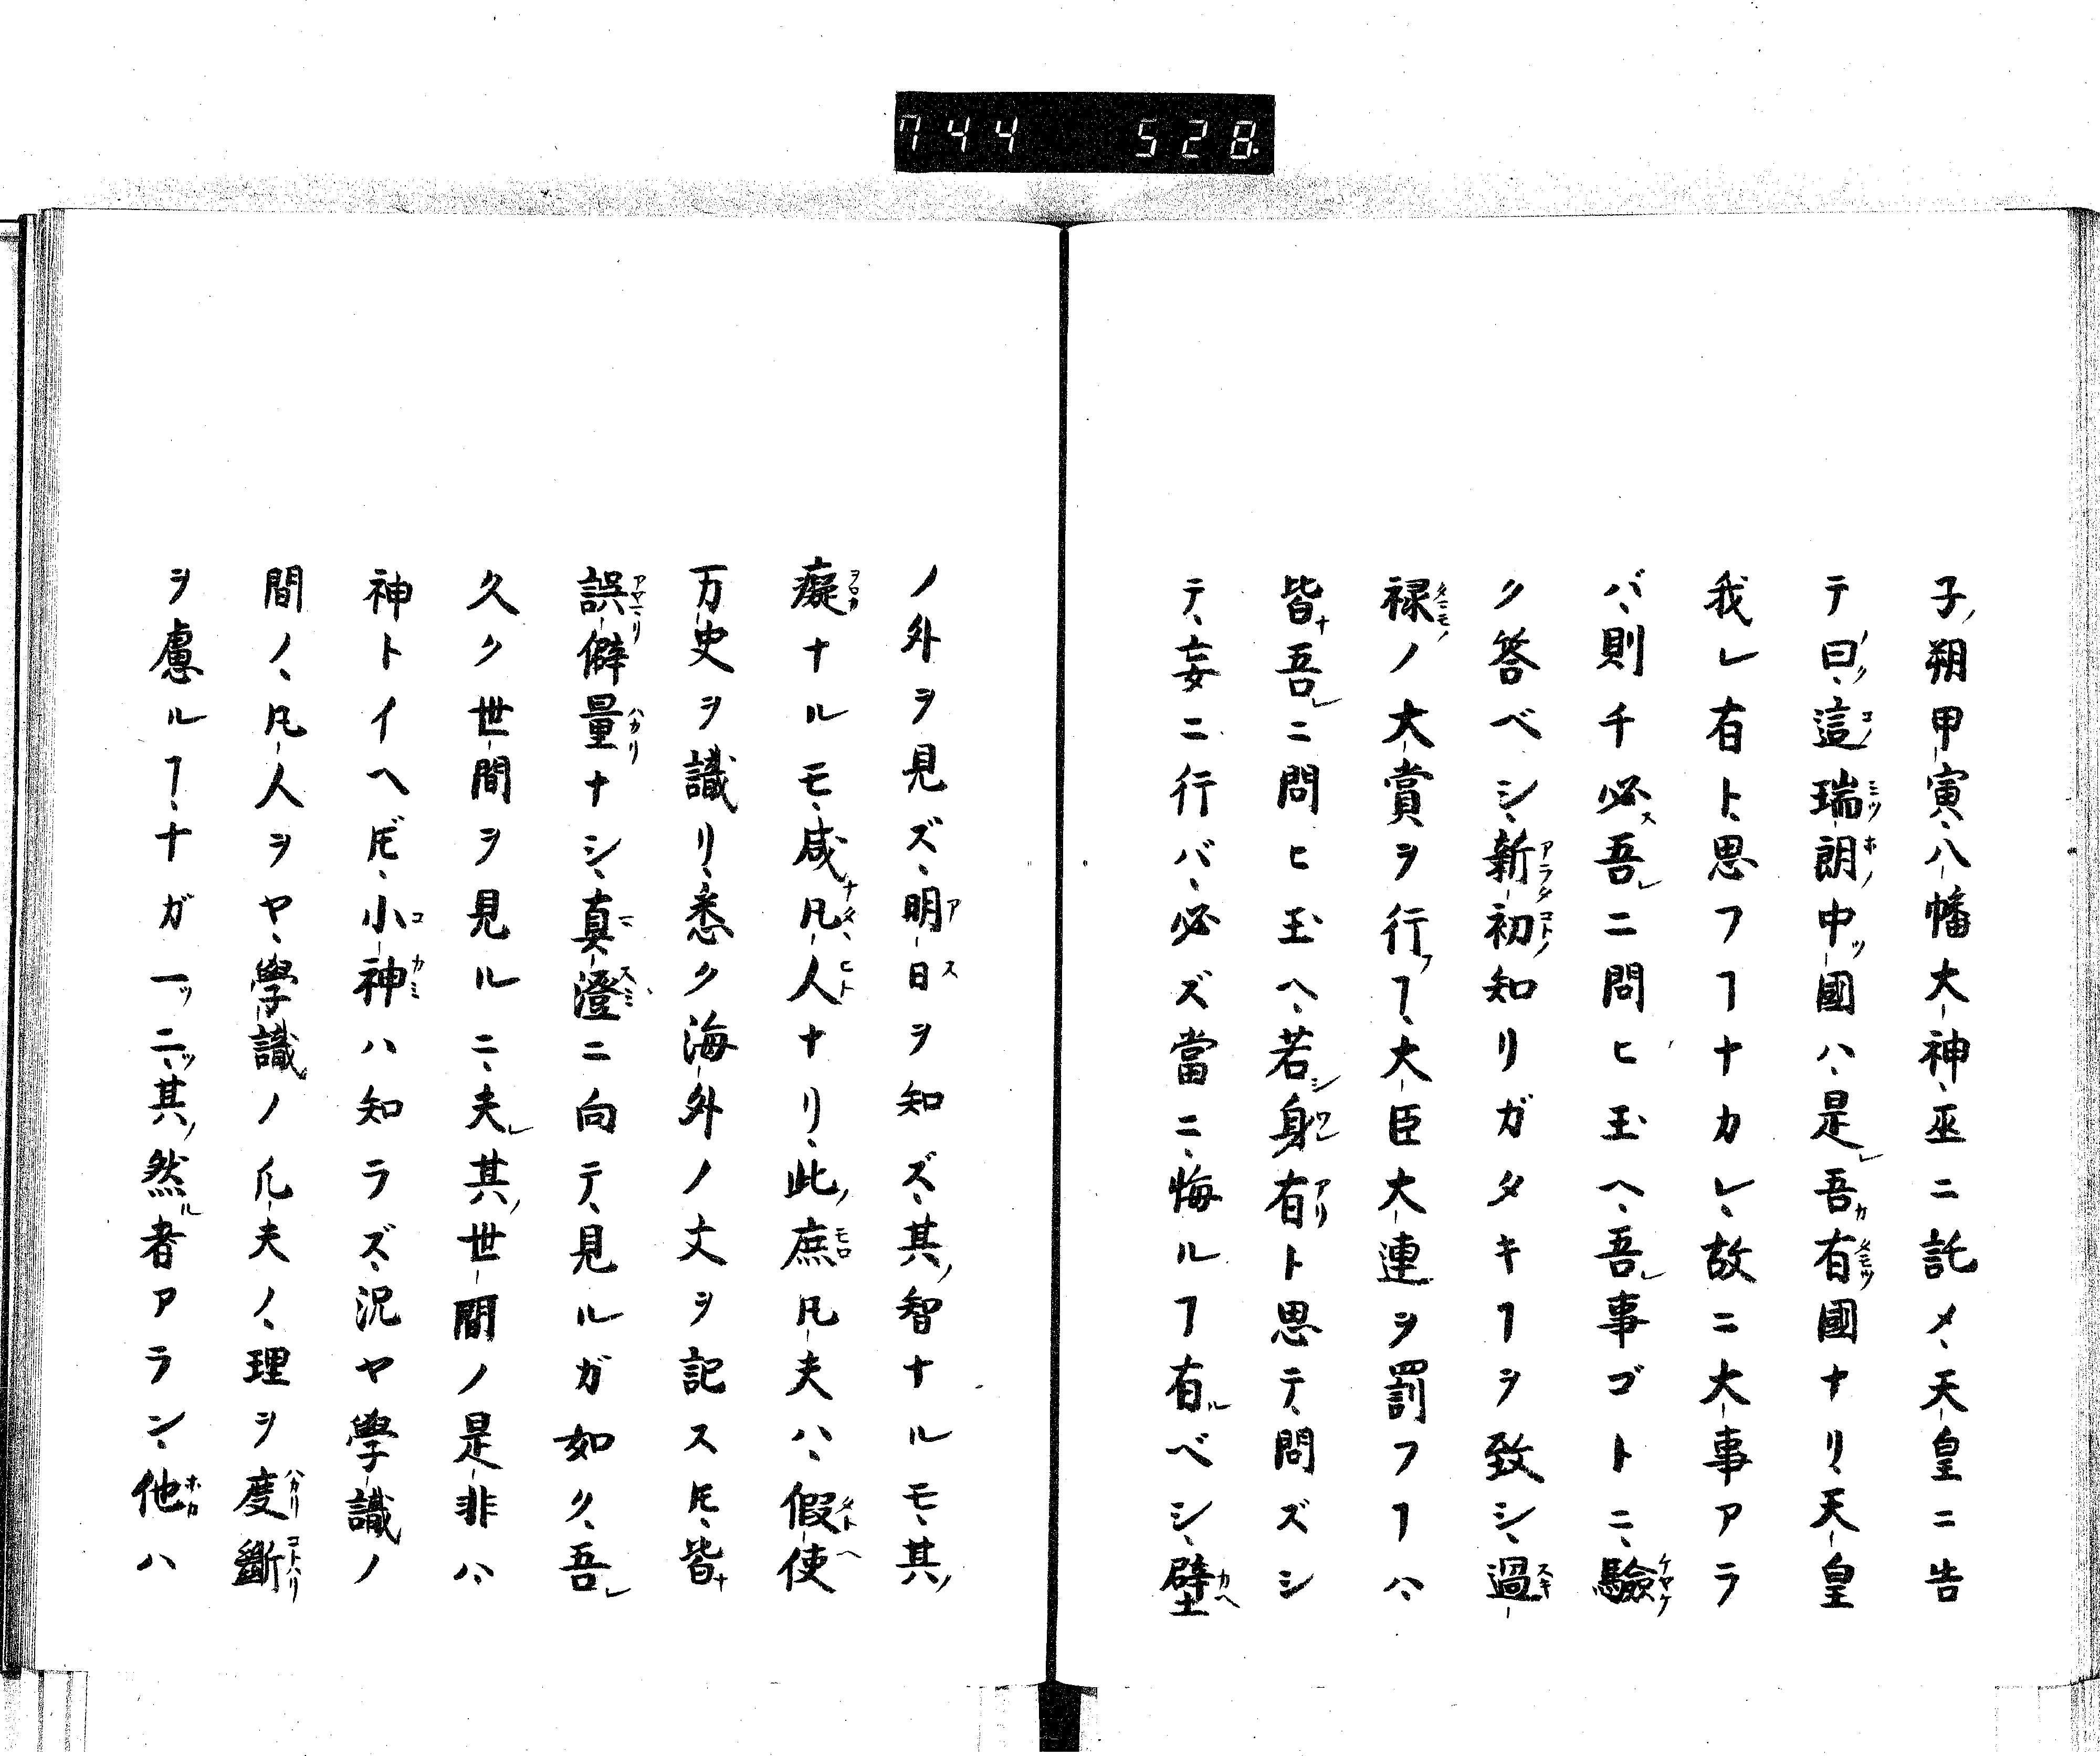 744 528.
子ノ朔甲寅、八幡大神、巫ニ託〆、天皇ニ告
テ曰ク、這瑞朗中ツ國ハ、是レ吾カ有國ナリ、天皇
我レ有ト、思フヿナカレ、故ニ大事アラ
バ、則チ必ス吾レニ問ヒ玉ヘ、吾レ事ゴトニ、驗
ク答ベシ、新初知リガタキヿヲ致シ、過
禄ノ大賞ヲ行フヿ、大臣大連ヲ罰フヿハ、
皆ナ吾レニ問ヒ玉ヘ、若シ身有ト思テ、問ズシ
テ、妄ニ行バ、必ズ當ニ、悔ルヿ有ルベシ、壁
ノ外ヲ見ズ、明日ヲ知ズ、其ノ智ナルモ、其ノ
癡ナルモ、咸ナ凡人ナリ、此ノ庶凡夫ハ、假使
万史ヲ識リ、悉ク海外ノ丈ヲ記スト𪜈、皆ナ
誤僻量ナシ、真澄ニ向テ、見ルガ如ク、吾レ
久ク世間ヲ見ルニ、夫レ其ノ世間ノ是非ハ、
神トイヘ𪜈、小神ハ知ラズ、況ヤ學識ノ
間ノ、凡人ヲヤ、學識ノ凡夫ノ、理ヲ度斷
ヲ慮ルヿ、ナガ一ツ二ツ、其ノ然ル者アラン、他ハ